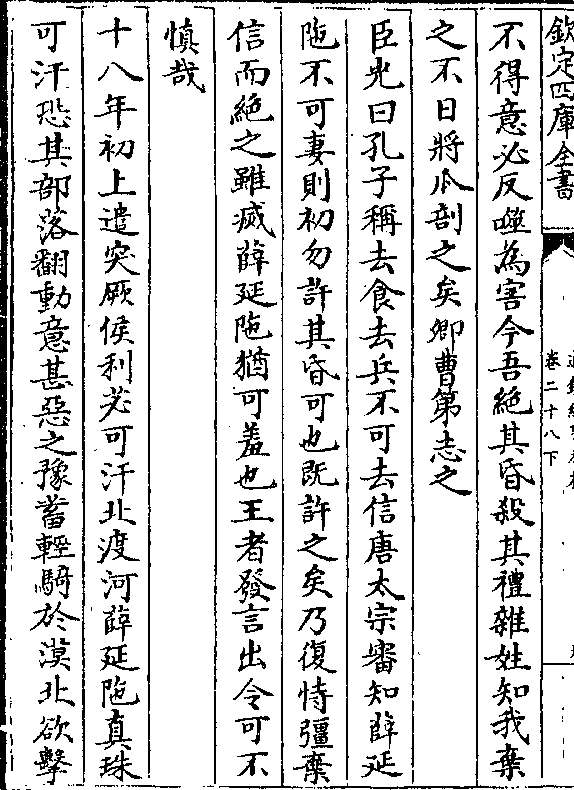 欽定四庫全書
卷二十八下
不得意必反噬為害今吾絕其昏殺其禮雜姓知我棄
之不日將瓜剖之矣卿曹第志之
臣光曰孔子稱去食去兵不可去信唐太宗審知薛延
陁不可妻則初勿許其昏可也既許之矣乃復恃彊棄
信而絕之雖滅薛延陁猶可羞也王者發言出令可不
慎哉
十八年初上遣突厥俟利苾可汗北渡河薛延陁真珠
可汗恐其部落翻動意甚惡之豫蓄輕騎於漠北欲擊